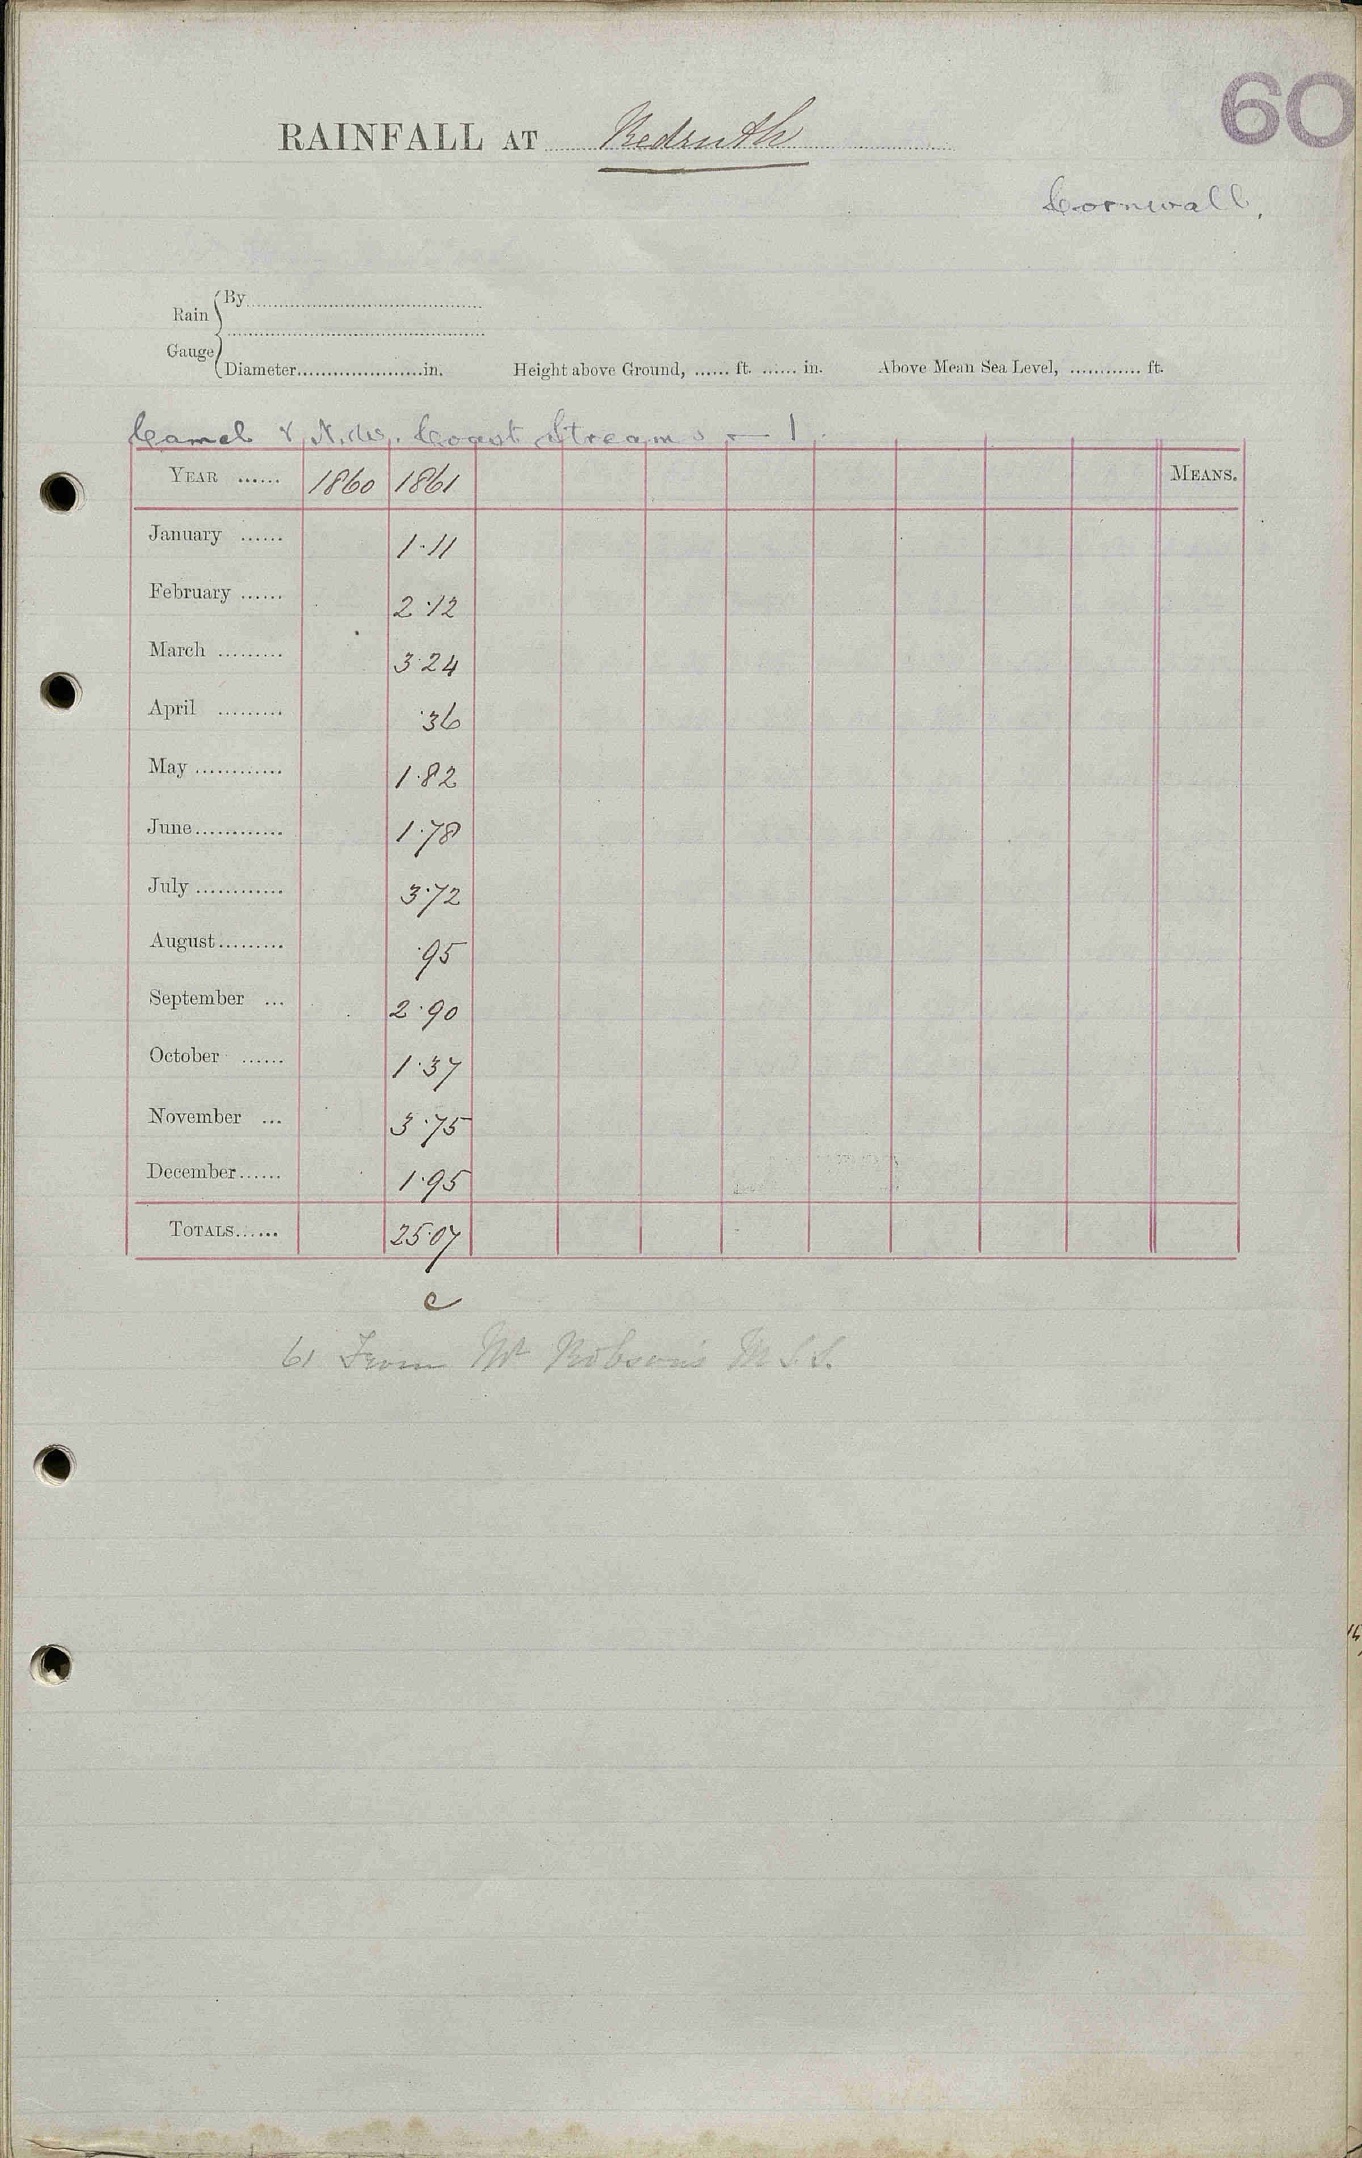 60
RAINFALL AT Redruth
Cornwall.
Rain Gauge
By
Diameter.....................in. Height above Ground, ...... ft. ...... in. Above Mean Sea Level, ............ ft.
Camel & N.W. Coast Streams — 1.
YEAR ...... 1860 1861 MEANS.
January ...... 1·11
February ...... 2·12
March ......... 3·24
April ......... ·36
May ............ 1·82
June............ 1·78
July ............ 3·72
August......... ·95
September ... 2·90
October ...... 1·37
November ... 3·75
December...... 1·95
TOTALS...... 25·07
c
61 From Mr Robson's M.S.S.